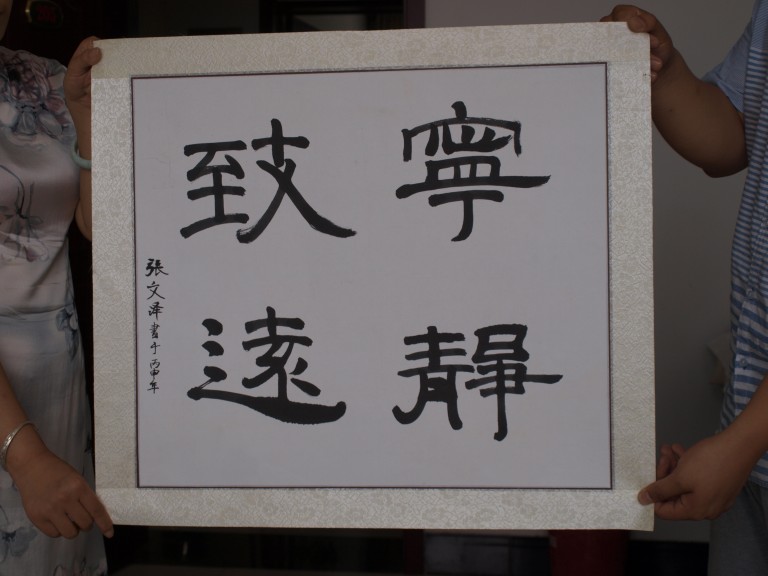 寧靜
致遠
張文泽書于丙申年